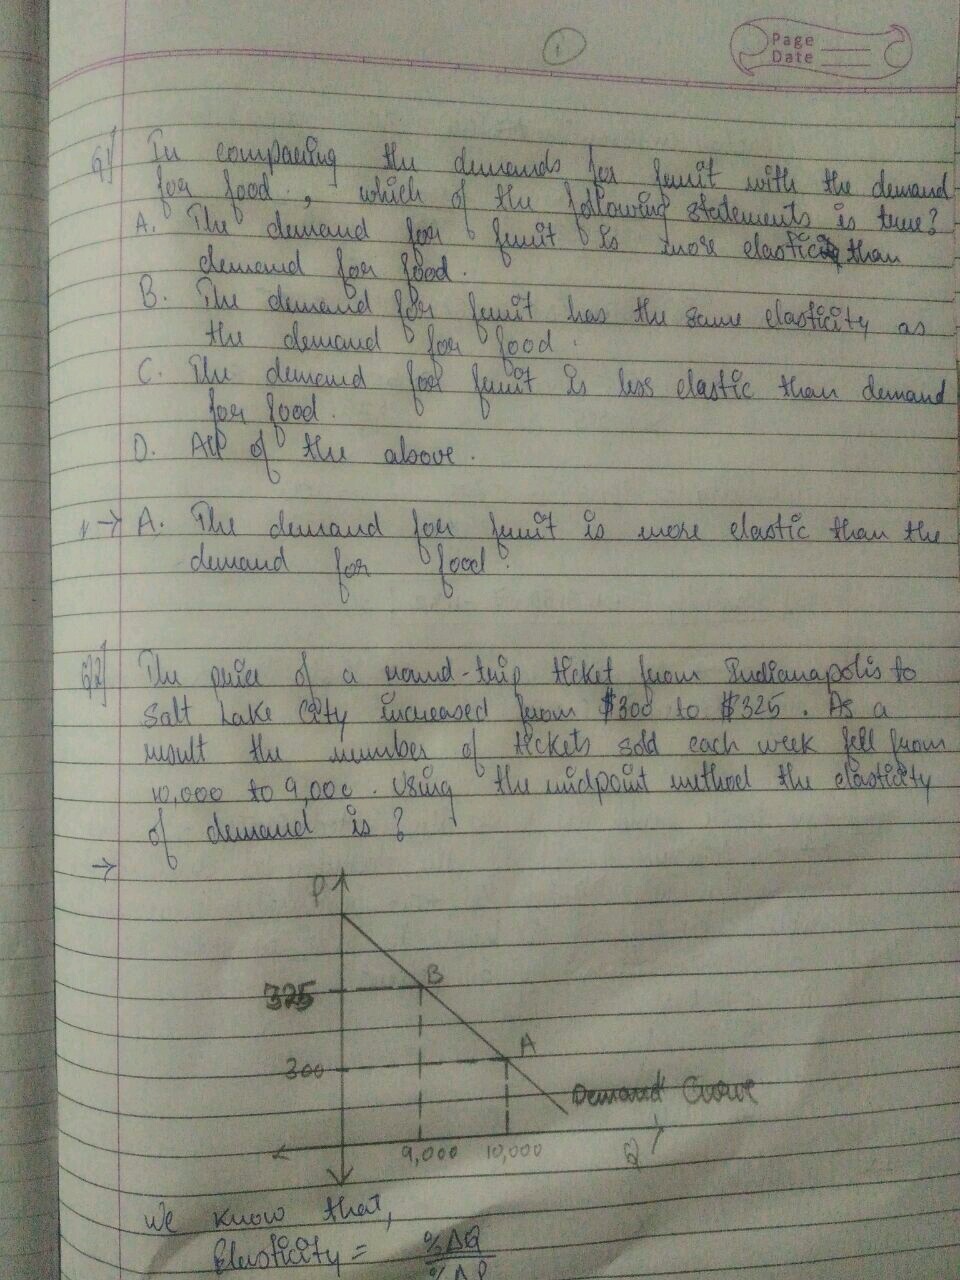 1
Page
Date
Q1) In comparing the demands for fruit with the demand
for food, which of the following statements is true?
A. The demand for fruit is more elastic than
demand for food.
B. The demand for fruit has the same elasticity as
the demand for food.
C. The demand for fruit is less elastic than demand
for food.
D. All of the above.
→ A. The demand for fruit is more elastic than the
demand for food.
Q2) The price of a round-trip ticket from Indianapolis to
Salt Lake City increased from $300 to $325. As a
result the number of tickets sold each week fell from
10,000 to 9,000. Using the midpoint method the elasticity
of demand is?
→
P
B
325
A
300
Demand Curve
9,000 10,000 Q
We know that,
Elasticity = %ΔQ
%ΔP